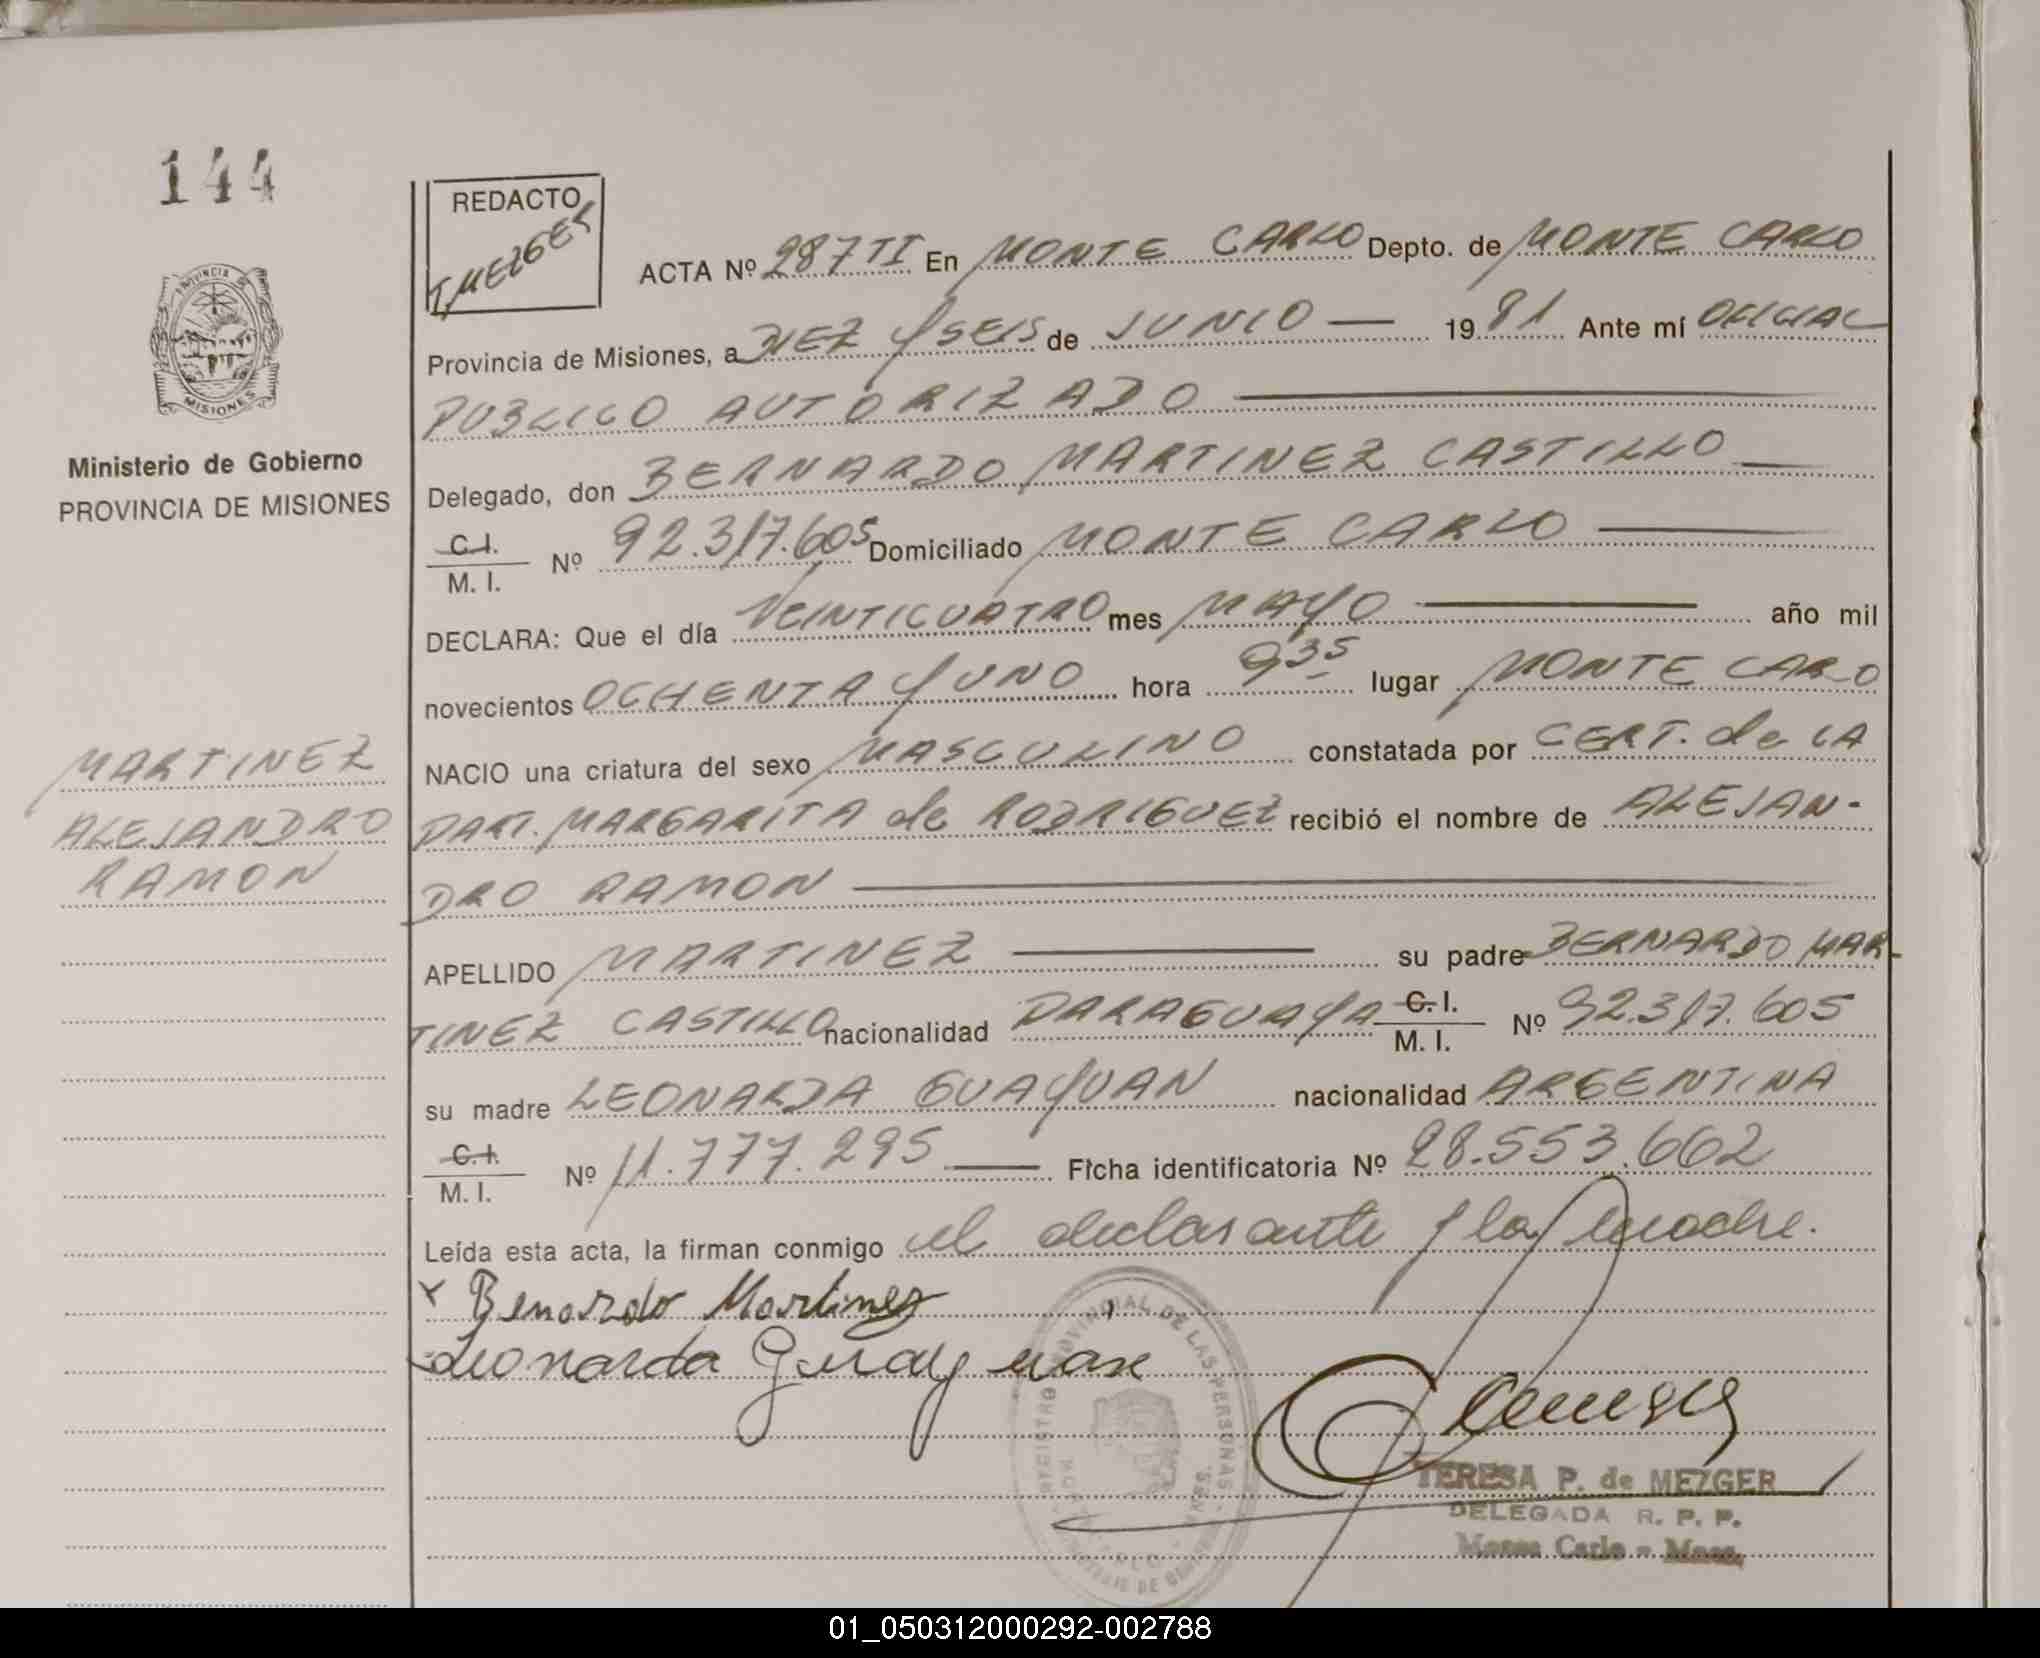 144
REDACTO
T. MEZGER
ACTA Nº 287 TI En MONTE CARLO Depto. de MONTE CARLO
Provincia de Misiones, a DIEZ Y SEIS de JUNIO — 19 81 Ante mí OFICIAL
PUBLICO AUTORIZADO —
Delegado, don BERNARDO MARTINEZ CASTILLO —
C.I.
M. I. Nº 92.317.605 Domiciliado MONTE CARLO —
DECLARA: Que el día VEINTICUATRO mes MAYO — año mil
novecientos OCHENTA Y UNO hora 9 35 lugar MONTE CARLO
NACIO una criatura del sexo MASCULINO constatada por CERT. de LA
PART. MARGARITA de RODRIGUEZ recibió el nombre de ALEJAN-
DRO RAMON —
APELLIDO MARTINEZ — su padre BERNARDO MAR-
TINEZ CASTILLO nacionalidad PARAGUAYA C.I.
M. I. Nº 92.317.605
su madre LEONARDA GUAYUAN nacionalidad ARGENTINA
C.I.
M. I. Nº 11.777.295 — Ficha identificatoria Nº 28.553.662
Leída esta acta, la firman conmigo el declarante y la madre.
x Benardo Martinez
Leonarda
TERESA P. de MEZGER
DELEGADA R. P. P.
Monte Carlo - Mnes.
REGISTRO PROVINCIAL DE LAS PERSONAS
PROVINCIA DE
MISIONES
Ministerio de Gobierno
PROVINCIA DE MISIONES
MARTINEZ
ALEJANDRO
RAMON
01_050312000292-002788